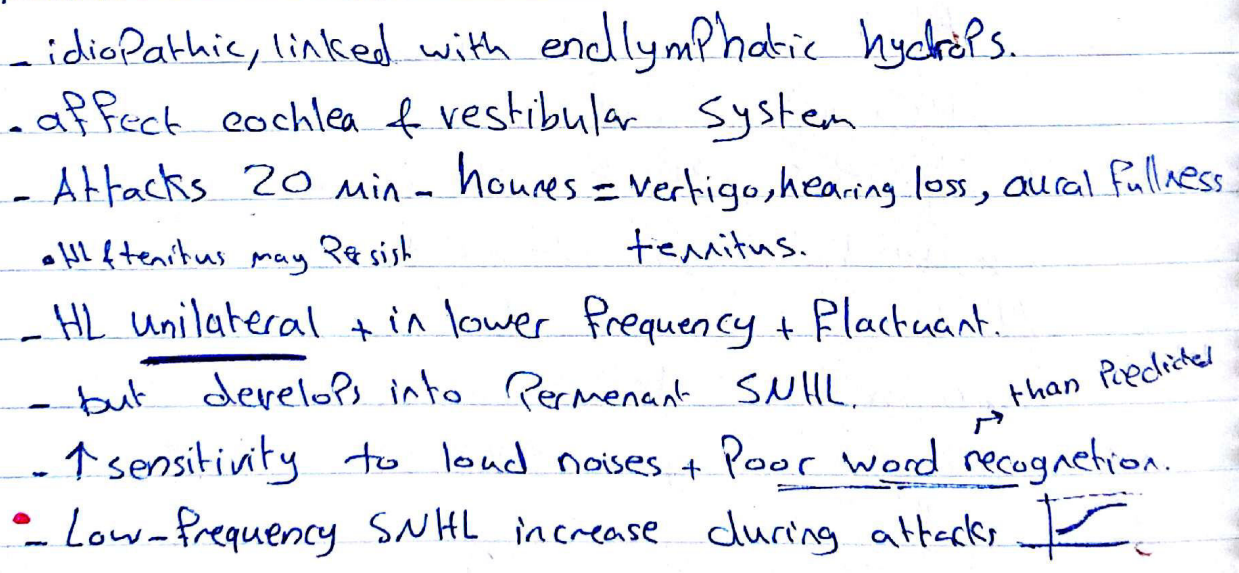 - idiopathic, linked with endlymphatic hydrops.
- affect cochlea & vestibular system
- Attacks 20 min - houres = vertigo, hearing loss, aural fullness
• HL & tenitus may Persist tennitus.
- HL unilateral + in lower frequency + flactuant.
- but develops into Permenant SNHL.
→ than Predicted
- ↑ sensitivity to loud noises + Poor word recognetion.
- Low-frequency SNHL increase during attacks